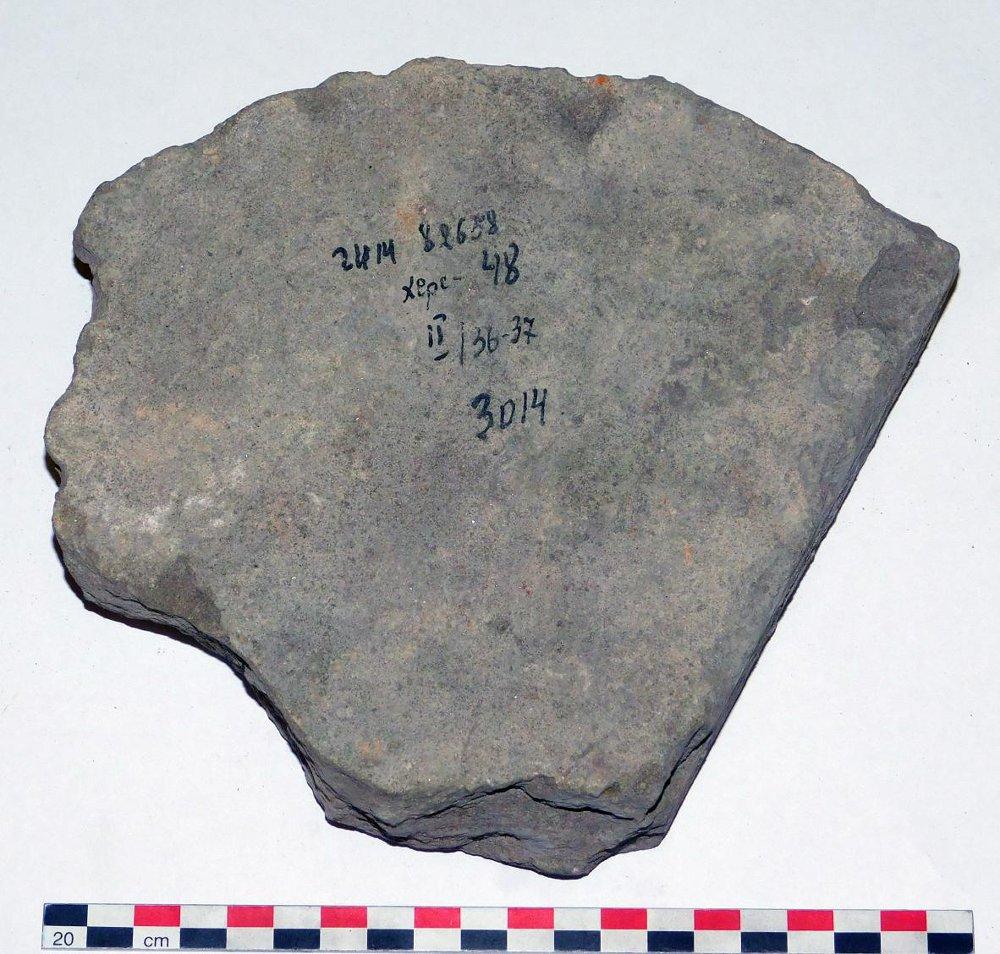 2414 82658
херс- 48
II/36-37
3014
20 cm